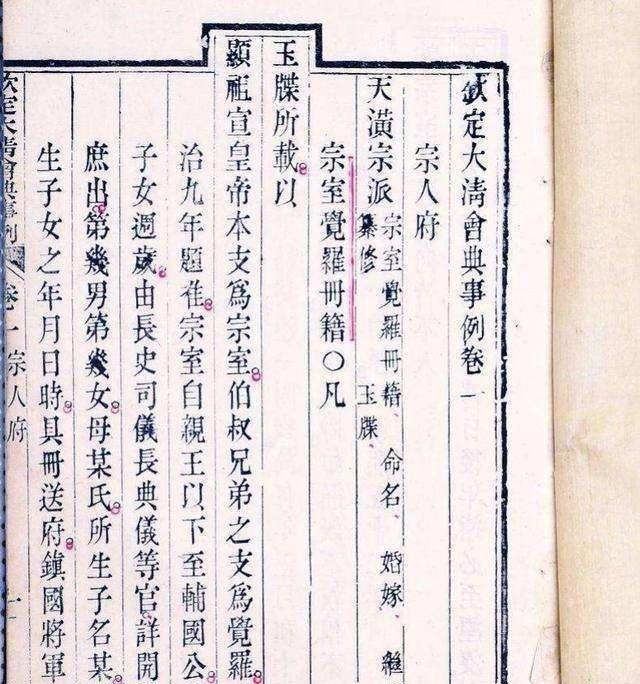 欽定大清會典事例卷一
宗人府
天潢宗派 宗室覺羅冊籍、命名、婚嫁、繼
纂修玉牒、
宗室覺羅冊籍○凡
玉牒所載以
顯祖宣皇帝本支為宗室伯叔兄弟之支為覺羅
治九年題准宗室自親王以下至輔國公
子女週歲由長史司儀長典儀等官詳開
庶出第幾男第幾女母某氏所生子名某
生子女之年月日時具冊送府鎮國將軍
欽定大清會典事例 卷一 宗人府 一